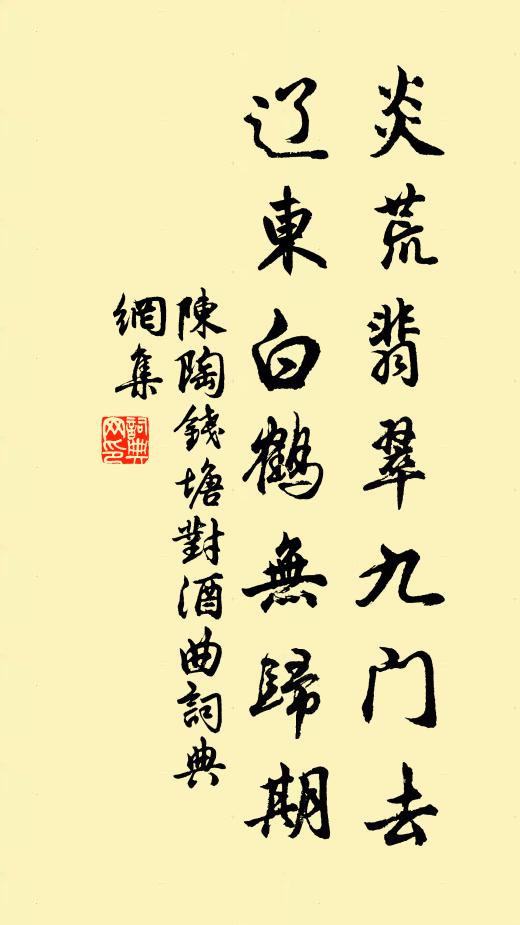 炎荒翡翠九门去
辽東白鹤無歸期
陳陶錢塘對酒曲詞典
網集
詞典
网印